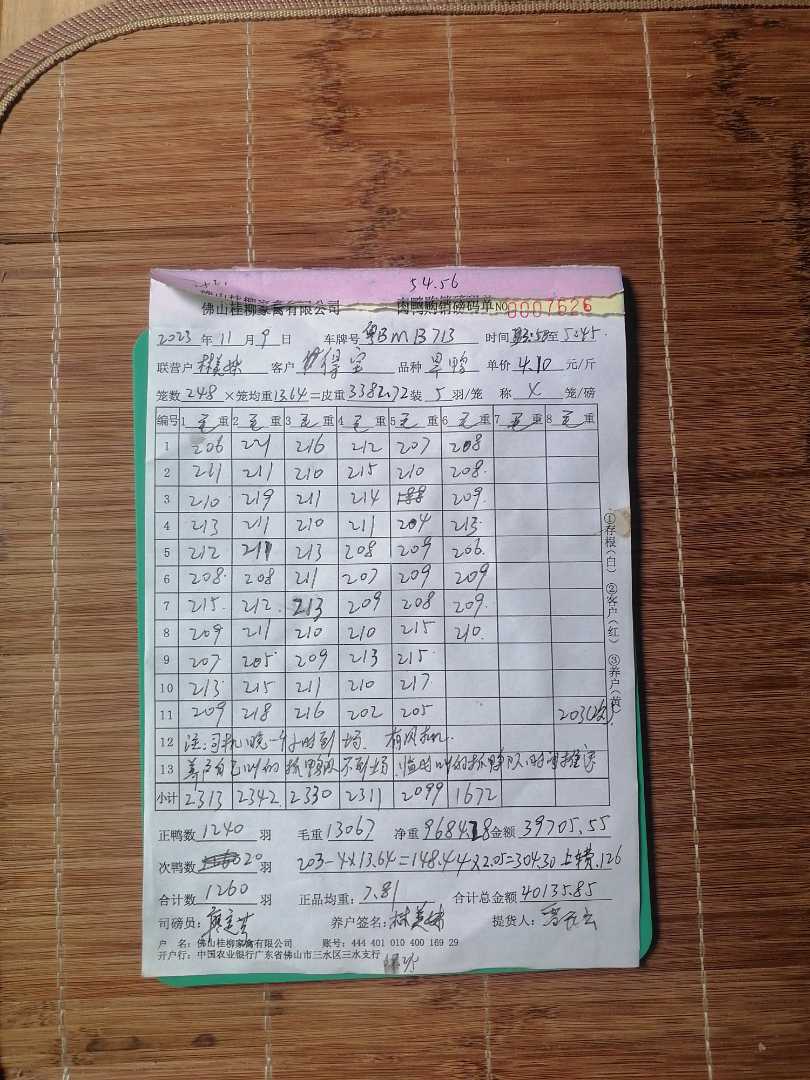 54.56
佛山桂柳家禽有限公司 肉鸭购销磅码单 NO 0007626
2023 年 11 月 9 日 车牌号 粤BMB713 时间 至 5:45
联营户 林美妹 客户 得宝 品种 旱鸭 单价 4.10 元/斤
笼数 248 ×笼均重 13.64 =皮重 3382.72 装 5 羽/笼 称 4 笼/磅
编号 1 毛 重 2 毛 重 3 毛 重 4 毛 重 5 毛 重 6 毛 重 7 毛 重 8 毛 重
1 206 221 216 212 207 208
2 211 211 210 215 210 208
3 210 219 211 214 209
4 213 211 210 211 204 213
5 212 211 213 208 209 206
6 208 208 211 207 209 209
7 215 212 213 209 208 209
8 209 211 210 210 215 210
9 207 205 209 213 215
10 213 215 211 210 217
11 209 218 216 202 205 203(次)
12 注:司机晚一个小时到场. 有风机.
13 养户自己叫的抓鸭队不到场.临时叫的抓鸭队.时间
小计 2313 2342 2330 2311 2099 1672
正鸭数 1240 羽 毛重 13067 净重 9684.28 金额 39705.55
次鸭数 20 羽 203-4×13.64=148.44×2.05=304.30 126
合计数 1260 羽 正品均重: 7.81 合计总金额 40135.85
司磅员: 养户签名: 林美妹 提货人:
户 名: 佛山桂柳家禽有限公司 账号: 444 401 010 400 169 29
开户行: 中国农业银行广东省佛山市三水区三水支行
①存根(白) ②客户(红) ③养户(黄)